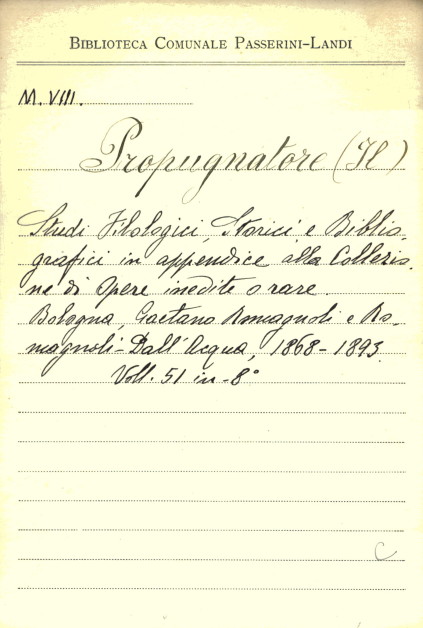 BIBLIOTECA COMUNALE PASSERINI-LANDI
M. VIII.
Propugnatore (Il)
Studi Filologici, Storici e Biblio
grafici in appendice alla Collezio.
ne di Opere inedite o rare.
Bologna, Gaetano Romagnoli e Ro-
magnoli-Dall'Acqua, 1868-1893.
Voll. 51 in-8°
C